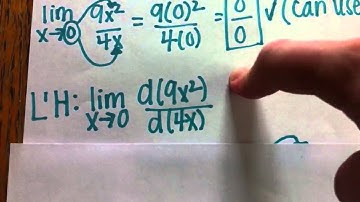 lim x→0 9x²/4x = 9(0)²/4(0) = 0/0 ✓ (can use
L'H: lim x→0 d(9x²)/d(4x)